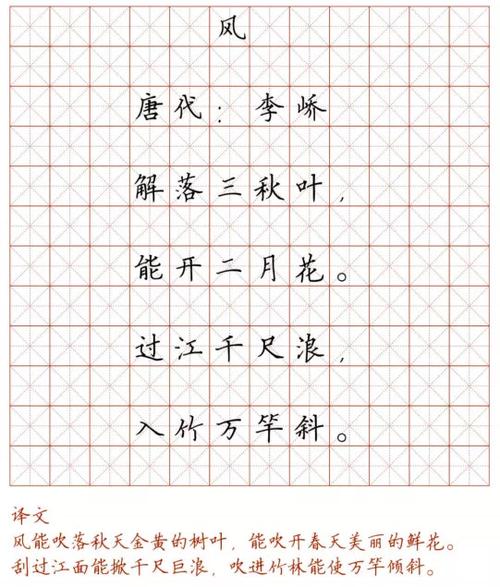 风
唐代：李峤
解落三秋叶，
能开二月花。
过江千尺浪，
入竹万竿斜。
译文
风能吹落秋天金黄的树叶，能吹开春天美丽的鲜花。
刮过江面能掀千尺巨浪，吹进竹林能使万竿倾斜。